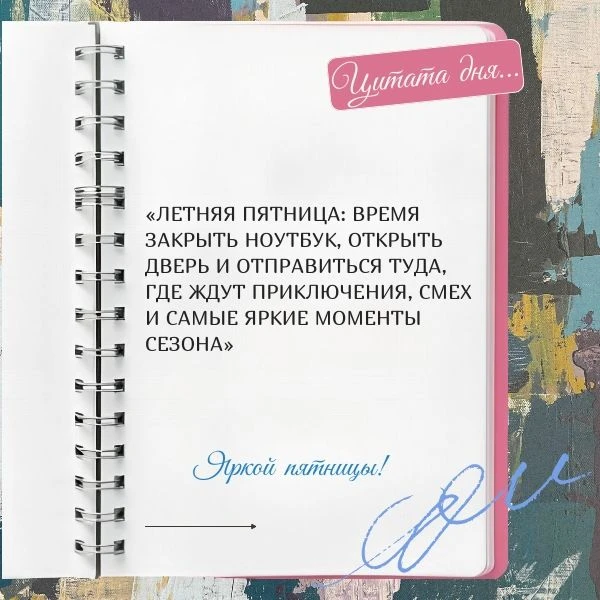 Цитата дня...
«ЛЕТНЯЯ ПЯТНИЦА: ВРЕМЯ
ЗАКРЫТЬ НОУТБУК, ОТКРЫТЬ
ДВЕРЬ И ОТПРАВИТЬСЯ ТУДА,
ГДЕ ЖДУТ ПРИКЛЮЧЕНИЯ, СМЕХ
И САМЫЕ ЯРКИЕ МОМЕНТЫ
СЕЗОНА»
Яркой пятницы!